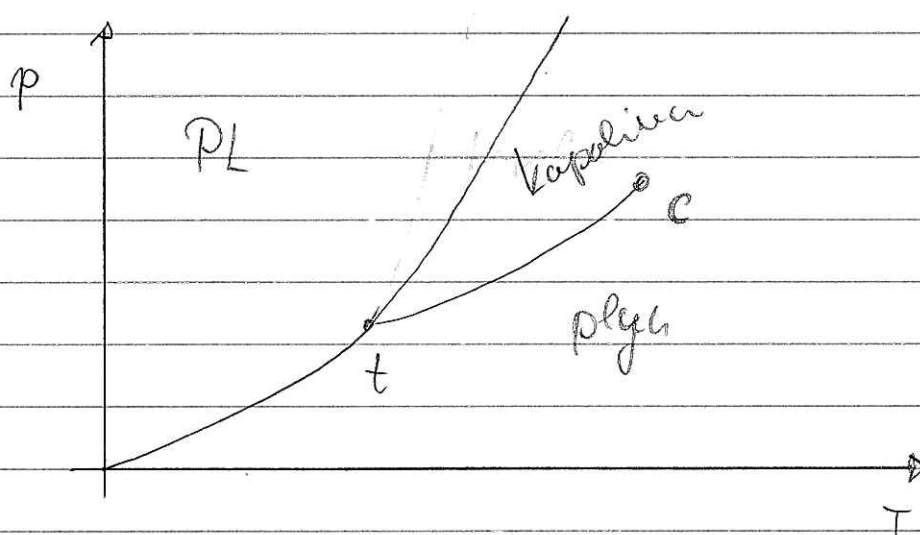 p
PL
kapalina
C
plyn
t
T